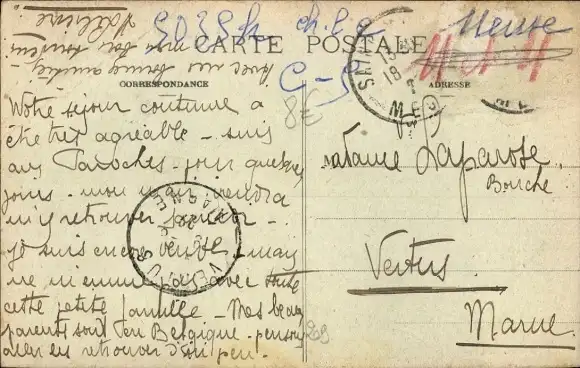 CARTE POSTALE
CORRESPONDANCE
ADRESSE
Meuse
8€
Notre séjour continue à
être très agréable - suis
aux Paroches - pour quelques
jours - mon mari viendra
m'y retrouver
Je suis encore - mais
ne m'ennuie pas avec toute
cette petite famille - Mes beaux
parents sont en Belgique - pensons
aller les retrouver d'ici peu.
Avec nos bonnes amitiés -
mon bon souvenir
Madame Laparose
Bouche
Vertus
Marne
VERTUS
MARNE